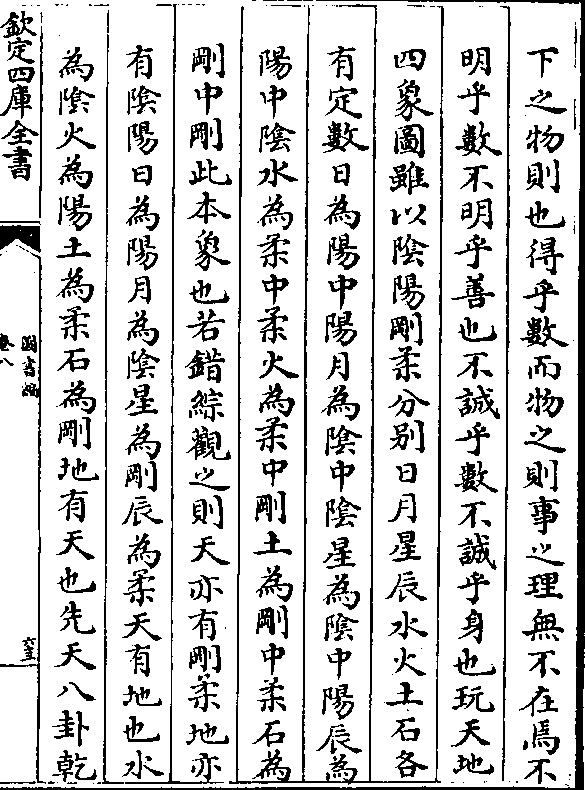 下之物則也得乎數而物之則事之理無不在焉不
明乎數不明乎善也不誠乎數不誠乎身也玩天地
四象圖雖以陰陽剛柔分别日月星辰水火土石各
有定數日為陽中陽月為陰中陰星為陰中陽辰為
陽中陰水為柔中柔火為柔中剛土為剛中柔石為
剛中剛此本象也若錯綜觀之則天亦有剛柔地亦
有陰陽日為陽月為陰星為剛辰為柔天有地也水
為陰火為陽土為柔石為剛地有天也先天八卦乾
欽定四庫全書
圖書編
卷八